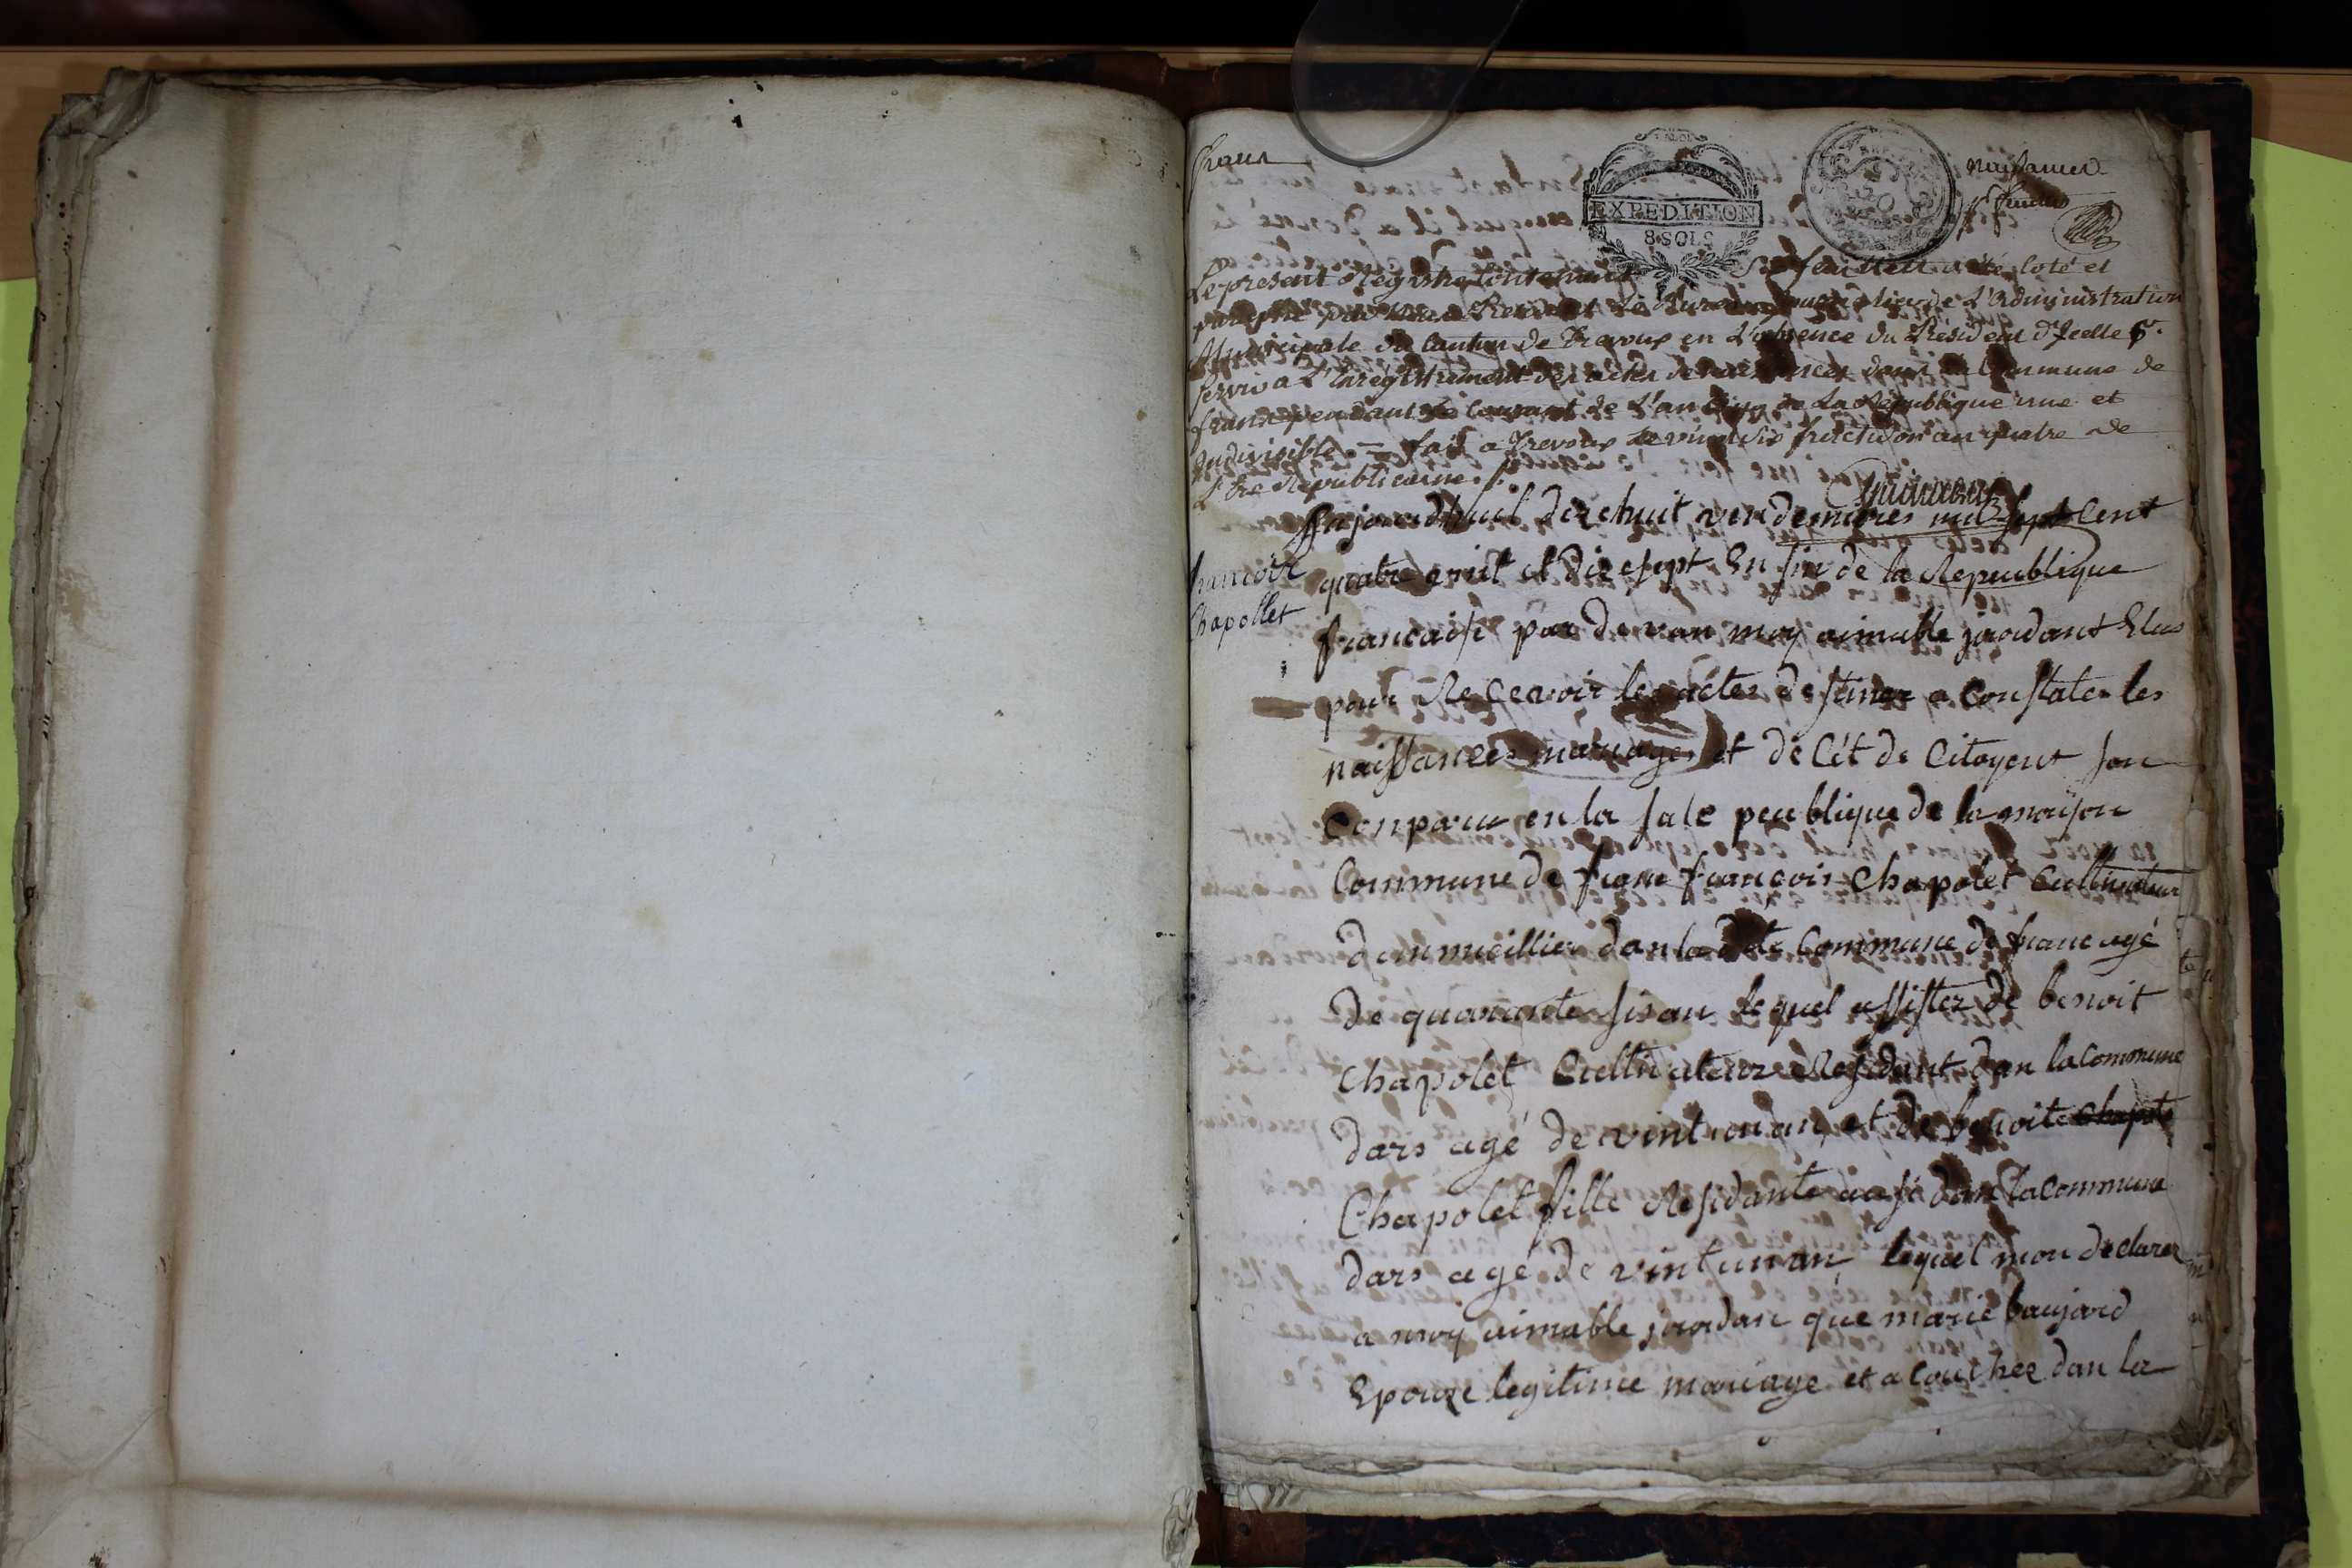 frans
EXPEDITION
8 SOLS
naissances
Le present Registre Contenant Six feuillets a été coté et
paraphé par nous President de Bureau de L'administration
Municipale du Canton de Trevoux en L'absence du President d'Icelle pr.
servir a L'enregistrement des actes de naissances dans la Commune de
frans pendant le Courant de L'an Cinq de la Republique une et
Indivisible. = fait a Trevoux le vingt six fructidor an quatre de
L'Ere Republicaine ./.
Aujourdhuil dixehuit vendemieres mil sept Cent
quatre vint et dix esept En sin de la Republique
francoir
Chapollet
francaise par devan moy aimable jourdant Elus
pour Recevoir les actes destines a Constater les
naissances mariages et de Cét de Citoyent son
Conparus en la sale peublique de la maison
Commune de frans francois Chapolet Cultivateur
doumicillier dan la dite Commune de frans agé
de quarante sis an lequel assistez de benoit
Chapolet Cultivateur Residant dan la Commune
dars agé de vint un an et de benoite Chapole
Chapolet fille Residante ausi dan la Commune
dars agé de vint un an lequel mon declarez
a moy aimable jourdan que marie baujard
Epouze legitime mariage et a Couchee dan la